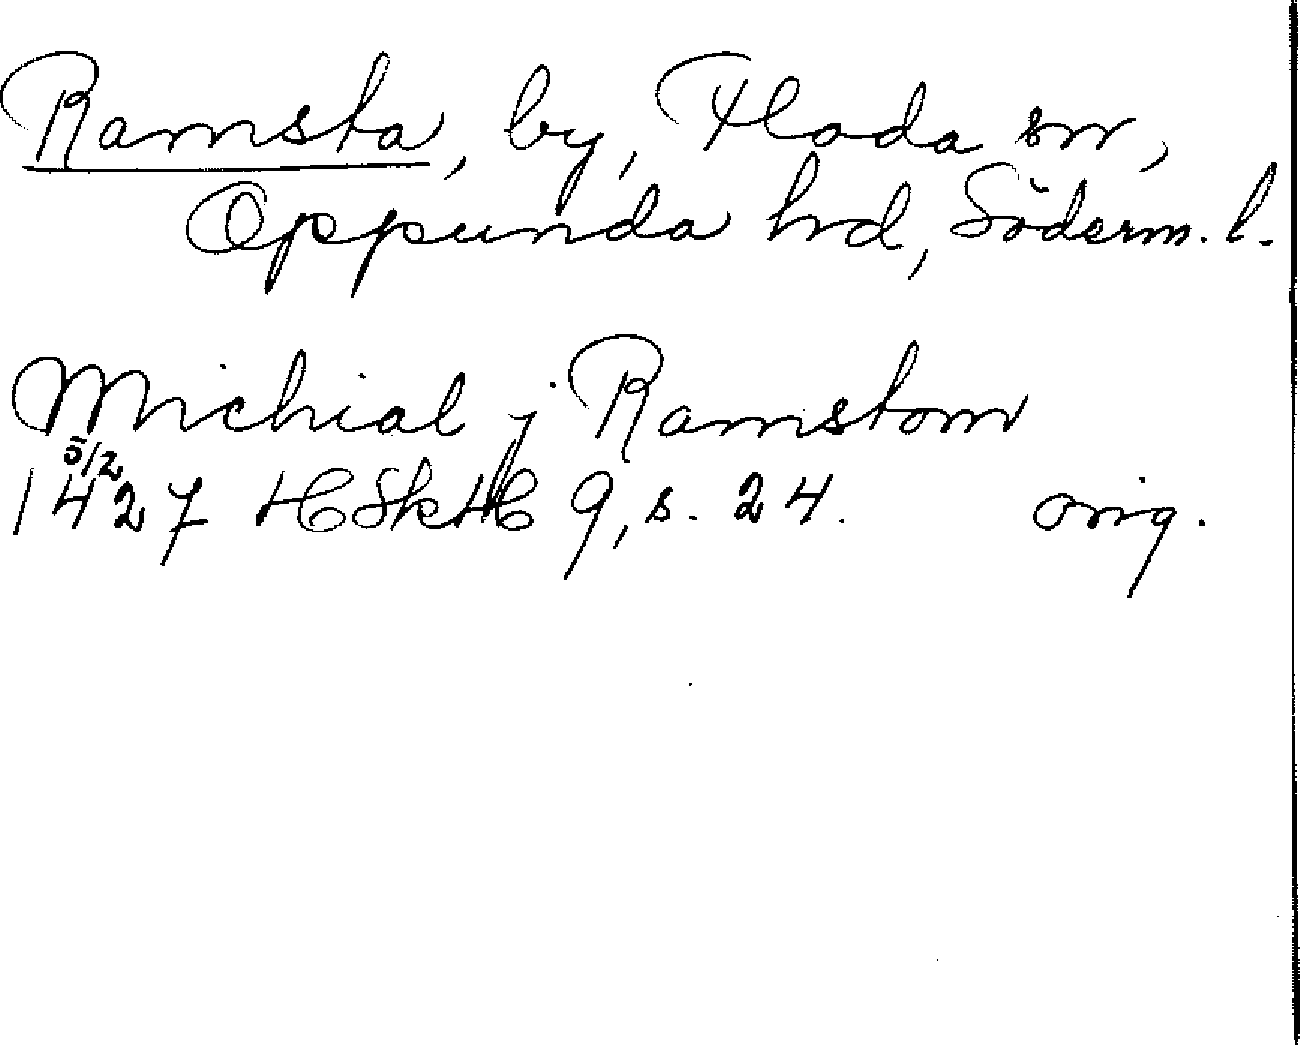 Ramsta, by, Floda sn,
Oppunda hd, Söderm. l.
Michial j Ramstom
1427 5/2 HSkH 9, s. 24. orig.